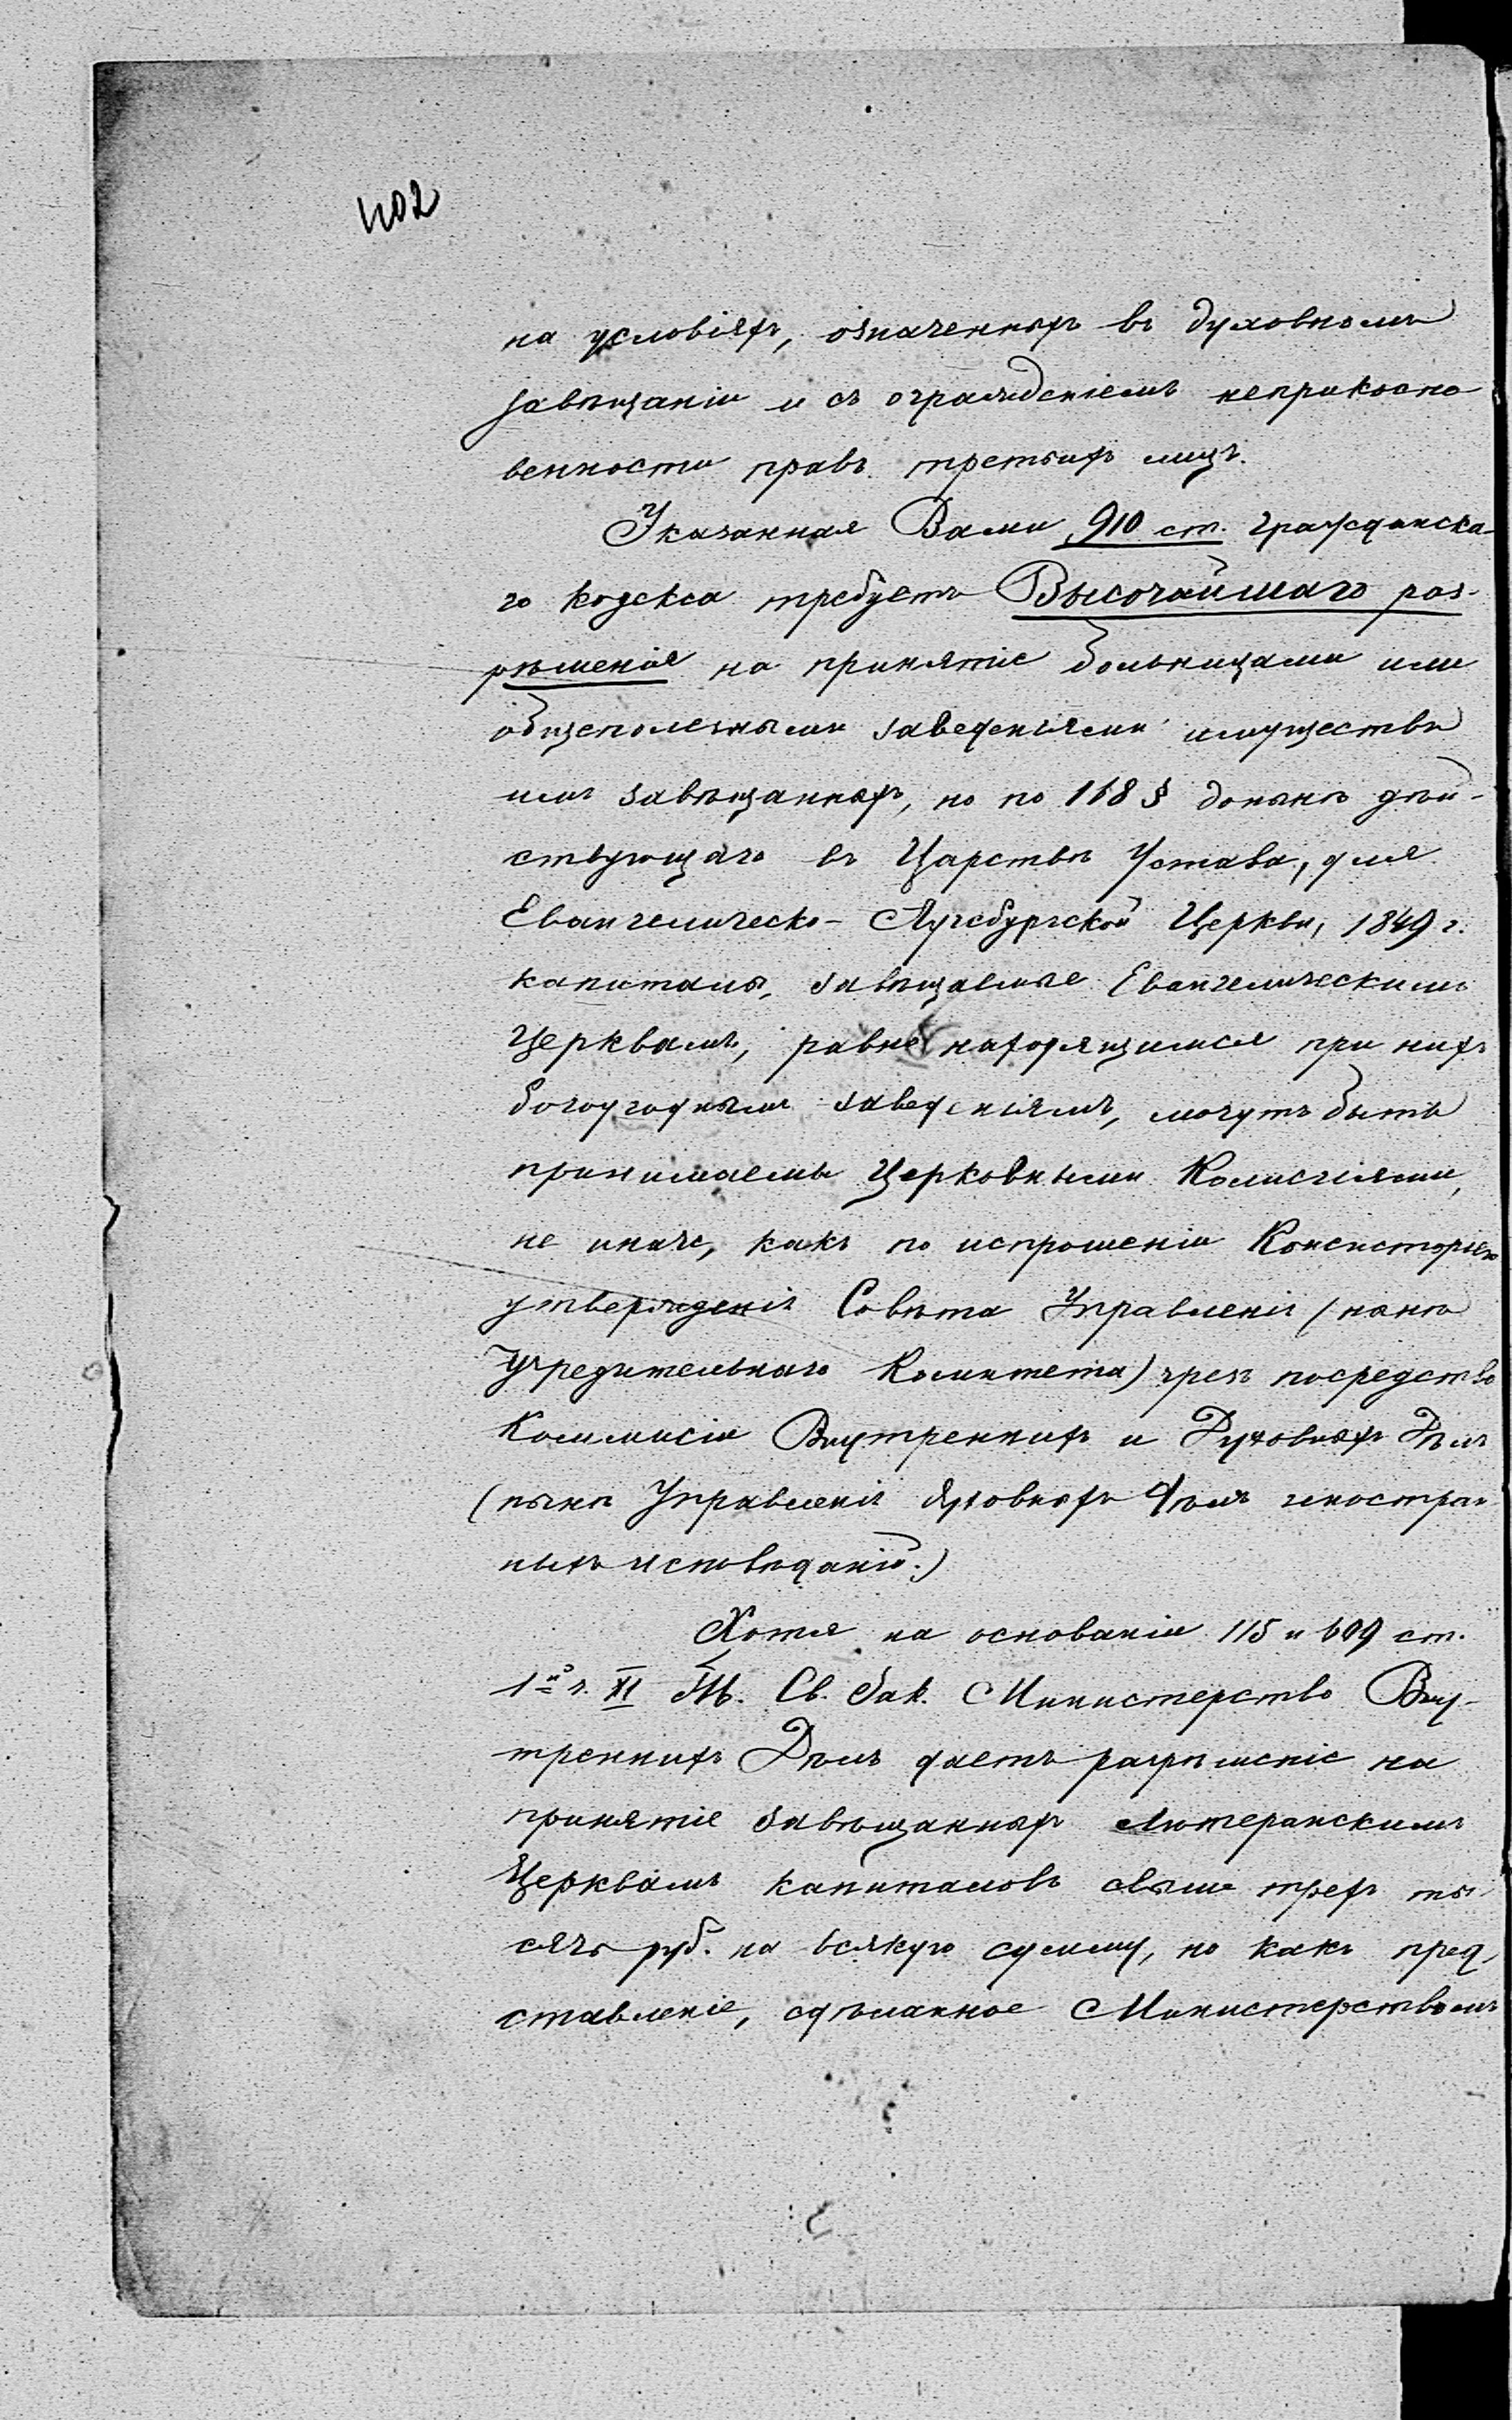 402
на условіяхъ, означенныхъ въ духовномъ
завѣщаніи и съ огражденіемъ неприкосно
венности правъ третьихъ лицъ.
Указанная Вами 910 ст. гражданска-
го кодекса требуетъ Высочайшаго раз-
рѣшенія на принятіе больницами или
общеполезными заведеніями имуществъ
имъ завѣщанныхъ, но по 168 § донынѣ дѣй-
ствующаго въ Царствѣ Устава, для
Евангелическо-Аугсбургской Церкви, 1849 г.
капиталы, завѣщаемые Евангелическимъ
Церквамъ, равно находящимся при нихъ
богоугоднымъ заведеніямъ, могутъ быть
принимаемы Церковными Колле­гіями,
не иначе, какъ по испрошеніи Консисторіею
утвержденія Совѣта Управленія (нынѣ
Учредительнаго Комитета) чрезъ посредство
Коммисіи Внутреннихъ и Духовныхъ Дѣлъ
(нынѣ Управленія духовныхъ дѣлъ иностран-
ныхъ исповѣданій.)
Хотя на основаніи 115 и 609 ст.
1ой ч. XI Т. Св. Зак. Министерство Вну-
треннихъ Дѣлъ даетъ разрѣшеніе на
принятіе завѣщанныхъ Лютеранскимъ
Церквамъ капиталовъ свыше трехъ ты-
сячъ руб. на всякую сумму, но какъ пред-
ставленіе, сдѣланное Министерствомъ